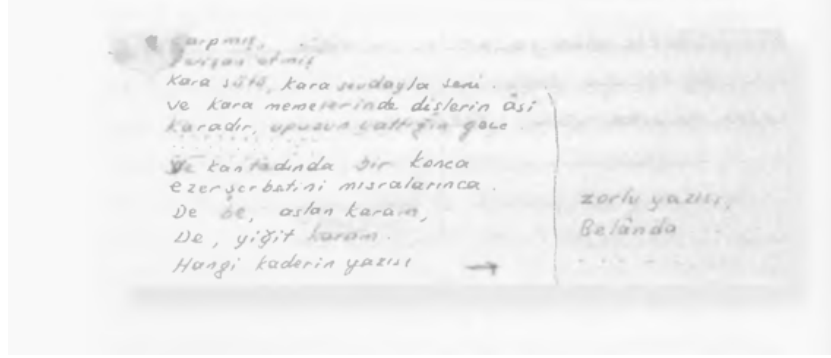 Çarpmış,
Perişan etmiş
Kara sütü, kara sevdayla seni.
ve kara memelerinde dişlerin âsi
Karadır, upuzun yattığın gece
. . . . . . . . . .
Ve kan tadında bir konca
ezer şerbetini mısralarınca.
De be, aslan karam,
De, yiğit karam.
Hangi kaderin yazısı →
zorlu yazısı,
Belânda
. . . . . .